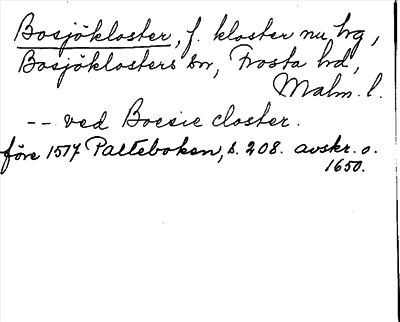 Bosjökloster, f. kloster nu hg,
Bosjöklosters sn, Frosta hd,
Malm. l.
-- ved Boesie closter.
före 1517 Palteboken, s. 208. avskr. o.
1650.